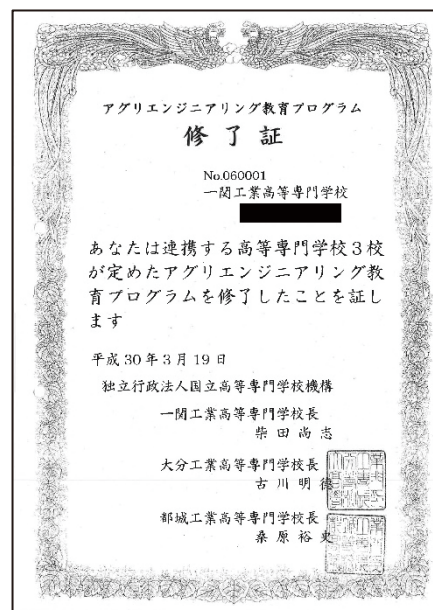 アグリエンジニアリング教育プログラム
修了証
No.060001
一関工業高等専門学校
あなたは連携する高等専門学校3校
が定めたアグリエンジニアリング教
育プログラムを修了したことを証し
ます
平成30年3月19日
独立行政法人国立高等専門学校機構
一関工業高等専門学校長
柴田尚志
大分工業高等専門学校長
古川明德
都城工業高等専門学校長
桑原裕史